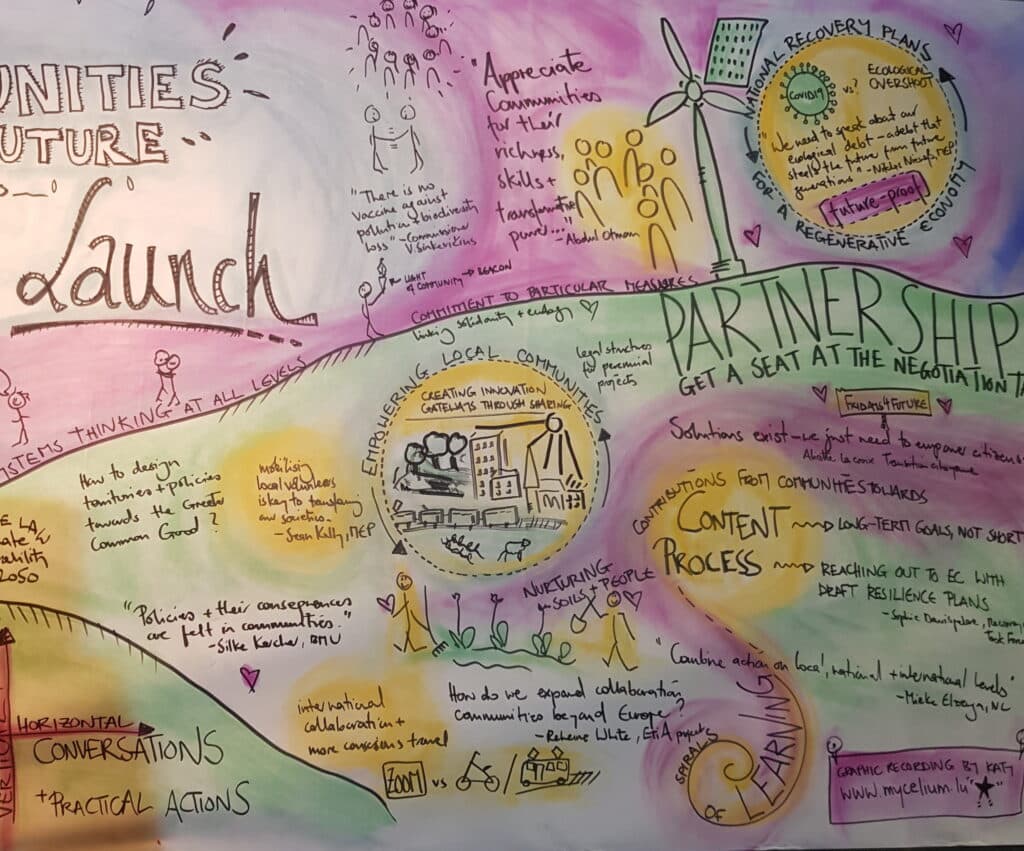 UNITIES
UTURE
Launch
"Appreciate
Communities
for their
richness,
skills +
transformative
power..."
- Abdul Otman
"There is no
vaccine against
pollution + biodiversity
loss" - Commissioner
V. Sinkevičius
LIGHT
COMMUNITY → BEACON
NATIONAL RECOVERY PLANS
FOR A REGENERATIVE ECONOMY
COVID19
vs?
ECOLOGICAL
OVERSHOOT
"We need to speak about our
ecological debt - a debt that
steals the future from future
generations"
MEP
future-proof
COMMITMENT TO PARTICULAR MEASURES
linking solidarity + ecology
SYSTEMS THINKING AT ALL LEVELS
legal structures
for perennial
projects
PARTNERSHIP
GET A SEAT AT THE NEGOTIATION TA
FRIDAYS4FUTURE
Solutions exist - we just need to empower citizens
EMPOWERING LOCAL COMMUNITIES
CREATING INNOVATION
GATEWAYS THROUGH SHARING
How to design
territories + policies
towards the Greater
Common Good?
mobilising
local volunteers
is key to
our societies -
- Sean Kelly, MEP
CONTRIBUTIONS FROM COMMUNITIES TOWARDS
CONTENT
LONG-TERM GOALS, NOT SHORT
PROCESS
REACHING OUT TO EC WITH
DRAFT RESILIENCE PLANS
- Sophie
Task Force
E LA
ate
ability
2050
NURTURING
SOILS + PEOPLE
"Policies + their consequences
are felt in communities."
- Silke Karcher, BMU
"Combine action on local, national + international levels"
- Mieke Elzenga, NL
HORIZONTAL
VERTICAL
CONVERSATIONS
+ PRACTICAL ACTIONS
international
collaboration +
more conscious travel
How do we expand collaboration
communities beyond Europe?
White,
projects
ZOOM vs /
SPIRALS
OF LEARNING
GRAPHIC RECORDING BY KATY
www.mycelium.lu